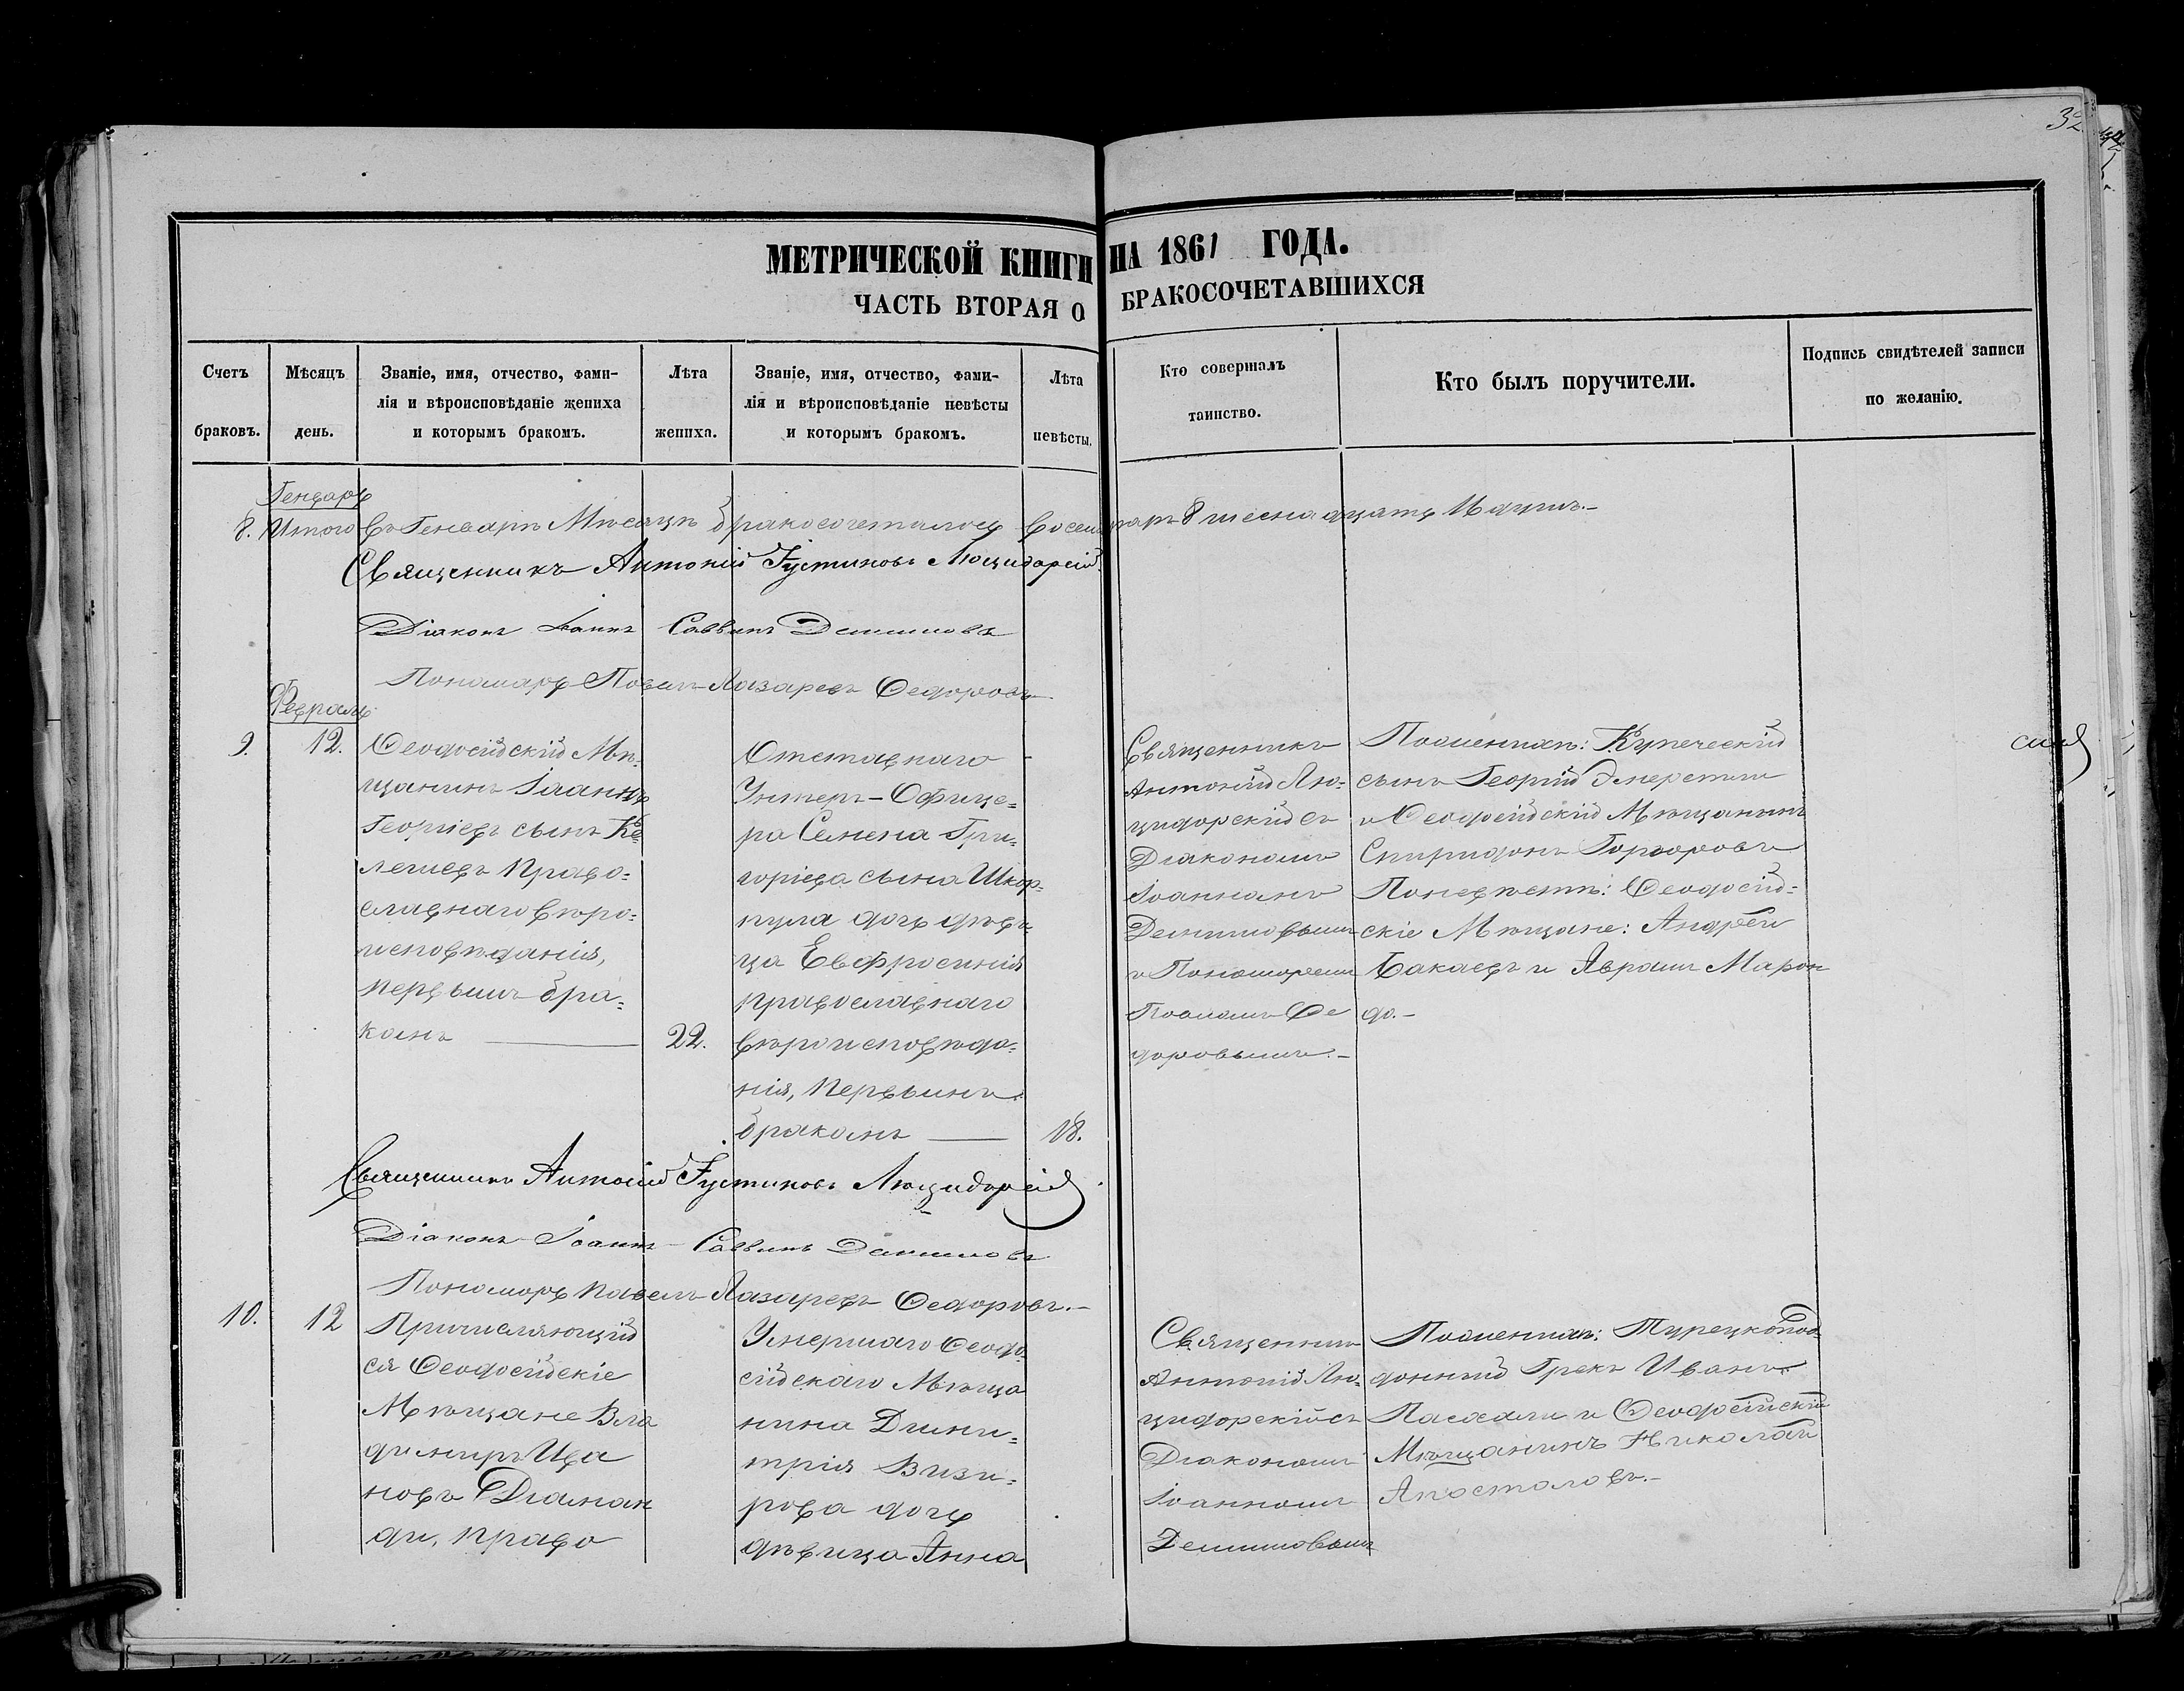 32
МЕТРИЧЕСКОЙ КНИГИ НА 1861 ГОДА.
ЧАСТЬ ВТОРАЯ О БРАКОСОЧЕТАВШИХСЯ
Счетъ браковъ.
Мѣсяцъ день.
Званіе, имя, отчество, фами-
лія и вѣроисповѣданіе жениха
и которымъ бракомъ.
Лѣта жениха.
Званіе, имя, отчество, фами-
лія и вѣроисповѣданіе невѣсты
и которымъ бракомъ.
Лѣта невѣсты.
Кто совершалъ
таинство.
Кто былъ поручители.
Подпись свидѣтелей записи
по желанію.
Генварь
8. Итого въ Генварѣ Мѣсяцѣ бракосочеталось восемь паръ 8 шеснадцать 16 душъ.-
Священникъ Антоній Іустиновъ Люцидарскій
Діаконъ Іоаннъ Саввинъ Демяновъ
Пономарь Павелъ Лазаревъ Ѳедоровъ
Февраль
9.
12.
Ѳеодосійскій Мѣ-
щанинъ Іоаннъ
Георгіевъ сынъ Ке
лешевъ Право-
славнаго вѣро-
исповѣданія,
первымъ бра-
комъ
22.
Отставнаго
Унтеръ-Офице-
ра Семена Гри-
горіева сына Шкор-
пула дочь дѣви-
ца Евфросинія
православнаго
вѣроисповѣда-
нія, первымъ
бракомъ
18.
Священникъ
Антоній Лю-
цидорскій съ
Діакономъ
Іоанномъ
Демяновымъ
и Пономаремъ
Павломъ Ѳе
доровымъ.-
По женихѣ: Купеческій
сынъ Георгій Эмеретли
и Ѳеодосійскій Мѣщанинъ
Спиридонъ Горгоровъ
По невѣстѣ: Ѳеодосій-
скіе Мѣщане: Андрей
Бакаевъ и Авраам Марон
до.-
скій
Священникъ Антоній Іустиновъ Люцидорскій
Діаконъ Іоаннъ Саввинъ Демяновъ
Пономарь Павелъ Лазаревъ Ѳедоровъ.-
10.
12
Причисляющій
ся Ѳеодосійскіе
Мѣщане Вла
димиръ Ива
новъ Діаман
ди, право
Умершаго Ѳеодо
сійскаго Мѣща
нина Дими-
трія Визи-
рова дочь
дѣвица Анна
Священникъ
Антоній Лю-
цидорскій съ
Діакономъ
Іоанномъ
Демяновымъ
По женихѣ: Турецкопод
данный Грекъ Иванъ
Пасхали и Ѳеодосійскій
Мѣщанинъ Николай
Апостоловъ.-